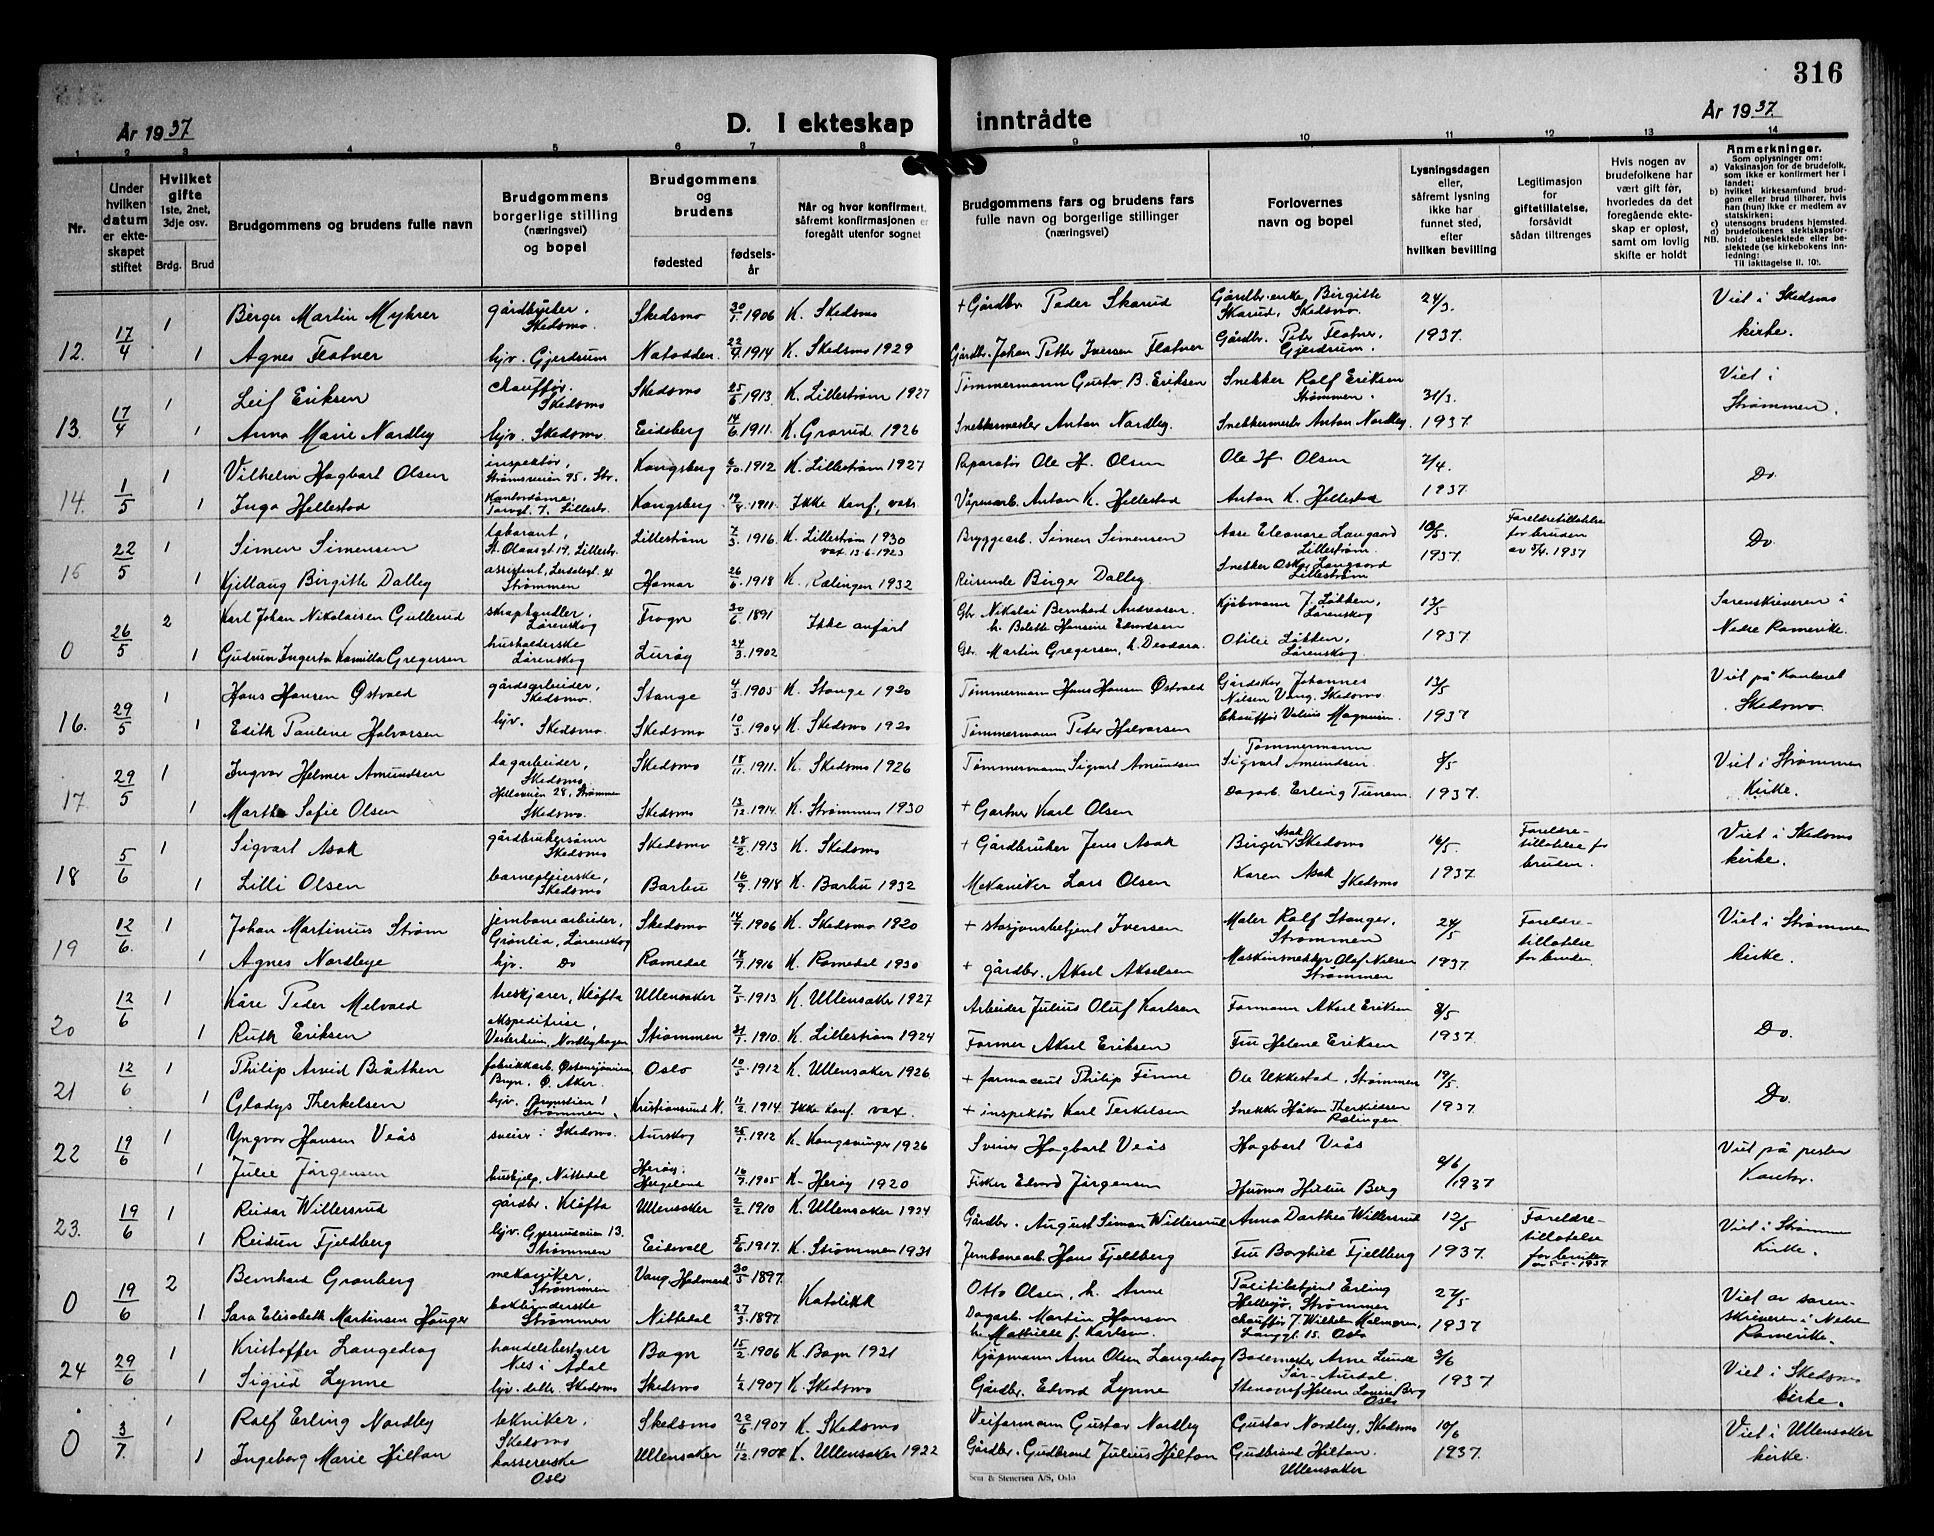 316
År 1937
D. I ekteskap inntrådte
År 1937.
1 2 3 4 5 6 7 8 9 10 11 12 13 14
Nr.
Under hvilken datum er ekteskapet stiftet
Hvilket gifte 1ste, 2net, 3dje osv.
Brdg. Brud
Brudgommens og brudens fulle navn
Brudgommens borgerlige stilling (næringsvei) og bopel
Brudgommens og brudens
fødested
fødselsår
Når og hvor konfirmert, såfremt konfirmasjonen er foregått utenfor sognet
Brudgommens fars og brudens fars fulle navn og borgerlige stillinger (næringsvei)
Forlovernes navn og bopel
Lysningsdagen eller, såfremt lysning ikke har funnet sted, efter hvilken bevilling
Legitimasjon for giftetillatelse, forsåvidt sådan tiltrenges
Hvis nogen av brudefolkene har vært gift før, hvorledes da det foregående ekteskap er opløst, samt om lovlig skifte er holdt
Anmerkninger.
Som oplysninger om:
a) Vaksinasjon for de brudefolk, som ikke er konfirmert her i landet;
b) hvilket kirkesamfund brudgom eller brud tilhører, hvis han (hun) ikke er medlem av statskirken;
c) utensogns brudens hjemsted.
d) brudefolkenes slektskapsforhold: ubeslektede eller beslektede (se kirkebokens innledning:
NB. Til iakttagelse II. 10).
12. 17/4 1 Berger Martin Myhrer gårdbruker, Skedsmo. Skedsmo 30/1 1906 K. Skedsmo + Gårdbr Peder Skarud Gårdbr.enke Birgitte Skarud, Skedsmo. 24/3. Viet i Skedsmo
1 Agnes Flatner hjv. Gjerdrum Notodden 22/9 1914 K. Skedsmo 1929 Gårdbr. Johan Petter Iversen Flatner Gårdbr. Peter Flatner, Gjerdrum. 1937. kirke.
13. 17/4 1 Leif Eriksen chauffør. Skedsmo Skedsmo 25/6 1913 K. Lillestrøm 1927 Tømmermann Gustav B. Eriksen Snekker Rolf Eriksen Strømmen. 31/3. Viet i
1 Anna Marie Nordley hjv. Skedsmo. Eidsberg 14/6 1911. K. Grorud 1926 Snekkermester Anton Nordley. Snekkermester Anton Nordley. 1937. Strømmen.
14. 1/5 1 Vilhelm Hagbart Olsen inspektør, Strømsveien 95. Str. Kongsberg 6/10 1912 K. Lillestrøm 1927 Reparatør Ole H. Olsen Ole H. Olsen 7/4. Do.
1 Inga Hellestad Kontordame, Torvgt. 7. Lillestr. Kongsberg 19/8 1911. Ikke konf., vaks. Våpenarb. Anton K. Hellestad Anton K. Hellestad 1937.
15 22/5 1 Simen Simensen laborant, St. Olavsgt 19, Lillestr. Lillestrøm 7/3 1916. K. Lillestrøm 1930 vax 13.6.1923 Bryggearb. Simen Simensen Aase Eleonore Langaard Lillestrøm. 10/5. Foreldretillatelse for bruden av 5/4.1937 Do.
1 Kjellaug Birgitte Dalley assistent, Strømmen Hamar 26/6 1918 K. Rælingen 1932 Reisende Birger Dalley. Snekker Oskar Langaard Lillestrøm 1937.
0 26/5 2 Karl Johan Nikolaisen Gullerud skaphandler, Lørenskog Frogn 30/6 1891 Ikke anført Gbr Nikolai Bernhard Andreasen. h. Bolette Hansine Edvardsen Kjøbmann J. Løkken, Lørenskog. 13/5 Sorenskriveren i
1 Gudrun Ingerta Kamilla Gregersen husholderske Lørenskog Lurøy 24/3 1902 Gbr. Martin Gregersen, h. Deodora. Otilie Løkken, Lørenskog. 1937. Nedre Romerike.
16. 29/5 1 Hans Hansen Østvold gårdsarbeider, Skedsmo. Stange 4/3 1905 K. Stange 1920 Tømmermann Hans Hansen Østvold Gårdskar Johannes Nilsen Vang, Skedsmo. 13/5 Viet på Kontoret
1 Edith Pauline Halvorsen hjv. Skedsmo. Skedsmo 10/3 1904 K. Skedsmo 1920 Tømmermann Peder Halvorsen Chauffør Valius Magnusen. 1937 Skedsmo
17. 29/5 1 Ingvar Helmer Amundsen dagarbeider, Skedsmo. Skedsmo 18/11 1911. K. Skedsmo 1926 Tømmermann Sigvart Amundsen Tømmermann Sigvart Amundsen. 8/5 Viet i Strømmen
1 Marthe Sofie Olsen Skedsmo. Skedsmo 13/12 1914. K. Strømmen 1930 + Gartner Karl Olsen Dagarb. Erling Tunem. 1937. Kirke.
18 5/6 1 Sigvart Asak gårdbrukersønn Skedsmo Skedsmo 28/2 1913 K. Skedsmo + Gårdbruker Jens Asak Birger Asak Skedsmo 16/5 Foreldretillatelse for bruden. Viet i Skedsmo
1 Lilli Olsen barnepleierske, Skedsmo Barbu 16/9 1918 K. Barbu 1932 Mekaniker Lars Olsen Karen Asak Skedsmo 1937. kirke.
19 12/6. 1 Johan Martinius Strøm jernbanearbeider, Grønlia, Lørenskog Skedsmo 14/9 1906 K. Skedsmo 1820 + stasjonsbetjent Iversen Maler Rolf Stanger, Strømmen 24/5 Foreldretillatelse for bruden. Viet i Strømmen
1 Agnes Nordbye hjv. Do Romedal 18/9 1916 K. Romedal 1930 + gårdbr. Aksel Akselsen Maskinsnekker Olaf Nilsen Strømmen 1937. kirke.
20 12/6 1 Kåre Peder Melvold treskjærer, Kløfta Ullensaker 7/5 1913 K. Ullensaker 1927 Arbeider Julius Oluf Karlsen Formann Aksel Eriksen 8/5 Do.
1 Ruth Eriksen ekspeditrise, Vesterheim, Nordbyhagen Strømmen 21/7 1910. K. Lillestrøm 1924 Former Aksel Eriksen Fru Helene Eriksen 1937.
21 12/6 1 Philip Arvid Bråthen fabrikkarb. Østensjøveien Bryn, Ø. Aker. Oslo 10/5 1912 K. Ullensaker 1926. + farmaceut Philip Finne Ole Ukkestad, Strømmen 19/5. Do.
1 Gladys Therkelsen hjv. Strømmen. Kristiansund N. 11/2 1914. Ikke konf. vax. + inspektør Karl Terkelsen Snekker Håkon Therkildsen Rælingen 1937.
22 19/6 1 Yngvar Hansen Veås sveiser i Skedsmo. Aurskog 25/9 1912 K. Kongsvinger 1926 Sveiser Hagbart Veås Hagbart Veås 2/6 Viet på presten
1 Julie Jørgensen hushjelp, Nittedal Herøy, Helgeland 16/9 1905 K. Herøy 1920 Fisker Edvard Jørgensen Berg 1937 Kontor.
23. 19/6 1 Reidar Willersrud gårdbr. Kløfta Ullensaker 2/2 1910 K. Ullensaker 1924 Gårdbr. August Simon Willersrud Anna Dorthea Willersrud 12/5 Foreldretillatelse for bruden av 5-5-1937. Viet i Strømmen
1 Reidun Fjeldberg hjv. 13. Strømmen Eidsvoll 5/6 1917. K. Strømmen 1931 Jernbanearb. Hans Fjellberg Fru Borghild Fjellberg 1937. Kirke.
0 19/6 2 Bernhard Granberg mekaniker, Strømmen Vang, Hedmark 30/5 1897. Katolikk Otto Olsen, h. Anne Politibetjent Erling Hellesjø, Strømmen 27/5 Viet av soren-
1 Sara Elisabeth Martinsen Hauger bokbinderske Strømmen Nittedal 27/3 1897 Dagarb. Martin Hansen h. Mathilde f. Karlsen. chauffør J. Wilhelm Malmgren, Langgt. 15. Oslo 1937 skriveren i Nedre Romerike.
24 29/6 1 Kristoffer Langedrag handelsbestyrer Nes i Ådal Bagn 15/2 1906 K. Bagn 1921 Kjøpmann Arne Olsen Langedrag Bademester Arne Lunde Sør-Aurdal. 3/6 Viet i Skedsmo
1 Sigrid Lynne hjv. datter. Skedsmo Skedsmo 4/2 1907 K. Skedsmo Gårdbr. Edvard Lynne Stenograf Helene Louise Berg Oslo 1937. kirke.
0 3/7. 1 Rolf Erling Nordley tekniker, Skedsmo Skedsmo 22/6 1907 K. Skedsmo Veiformann Gustav Nordley Gustav Nordley, Skedsmo 10/6 Viet i Ullensaker
1 Ingeborg Marie Hilton kassererske Oslo Ullensaker 11/12 1907 K. Ullensaker 1922 Gårdbr. Gudbrand Julius Hilton Gudbrand Hilton. Ullensaker 1937. kirke.
Sem & Stenersen A/S, Oslo